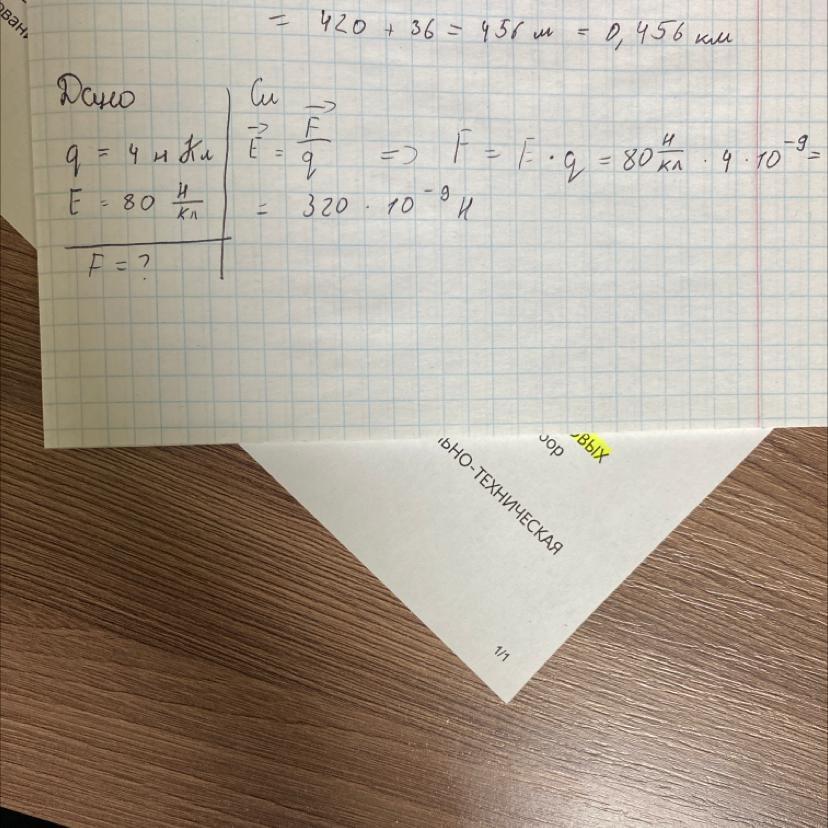 = 420 + 36 = 456 м = 0,456 км
Дано
Си
q = 4 н Кл
E = 80 Н/Кл
F = ?
E⃗ = F⃗/q => F = E · q = 80 Н/Кл · 4 · 10⁻⁹ =
= 320 · 10⁻⁹ Н
ЬНО-ТЕХНИЧЕСКАЯ
1/1